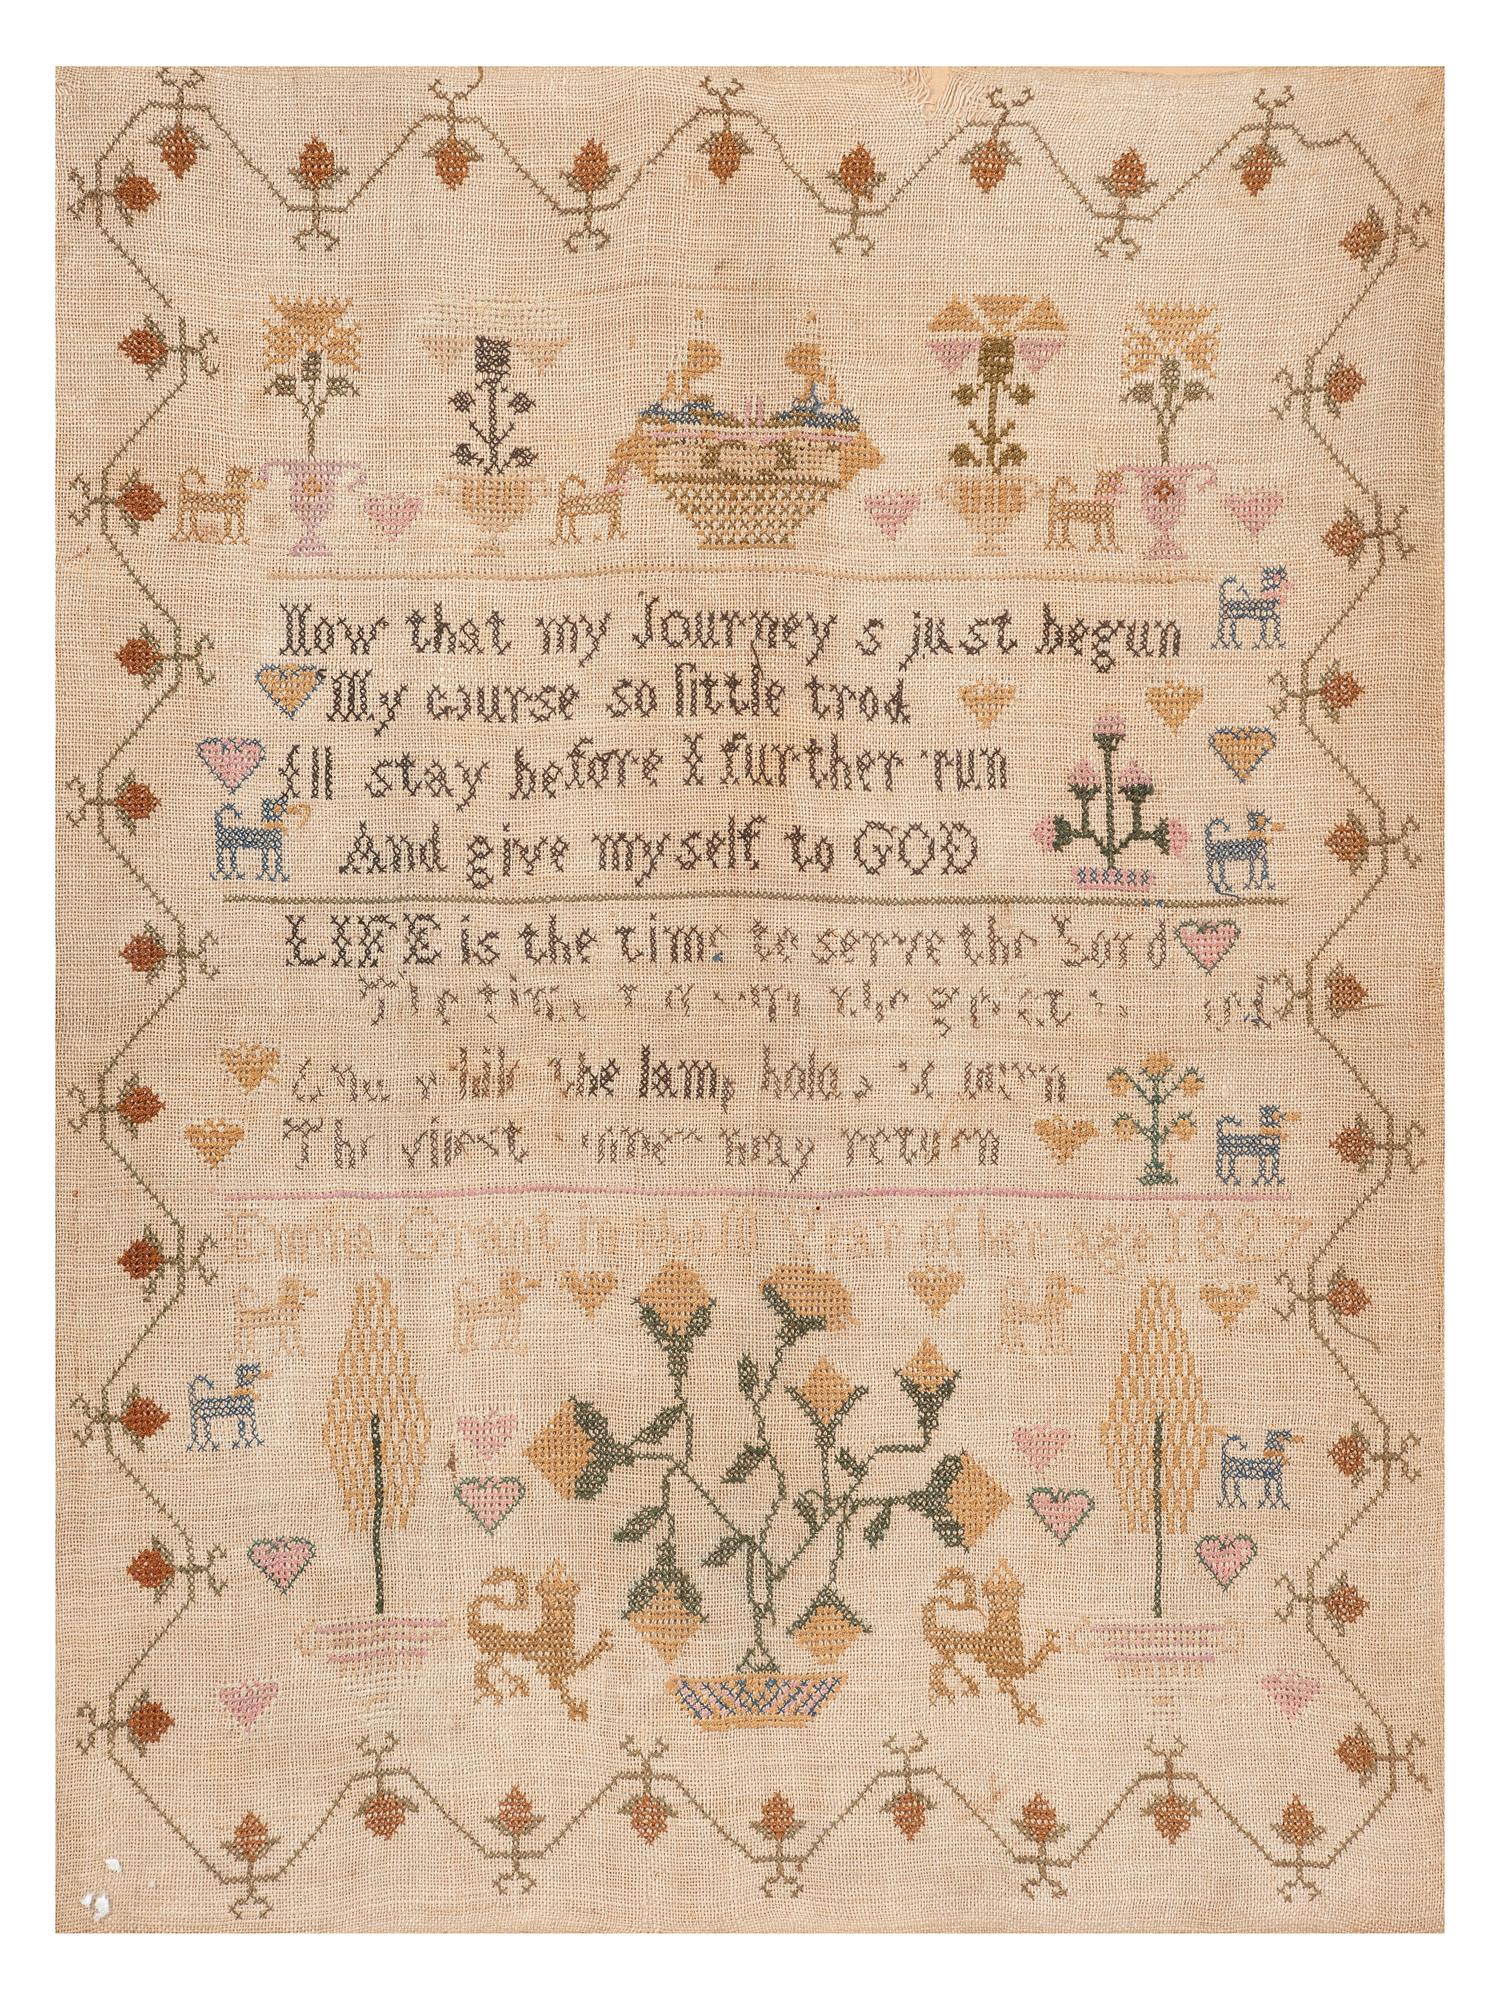 Now that my Journey s just begun
My course so little trod
Ill stay before I further run
And give myself to GOD
LIFE is the time to serve the Lord
The time the great
the lamp holds
The vilest sinner may return
Emma Grant in the 11 Year of her age 1827